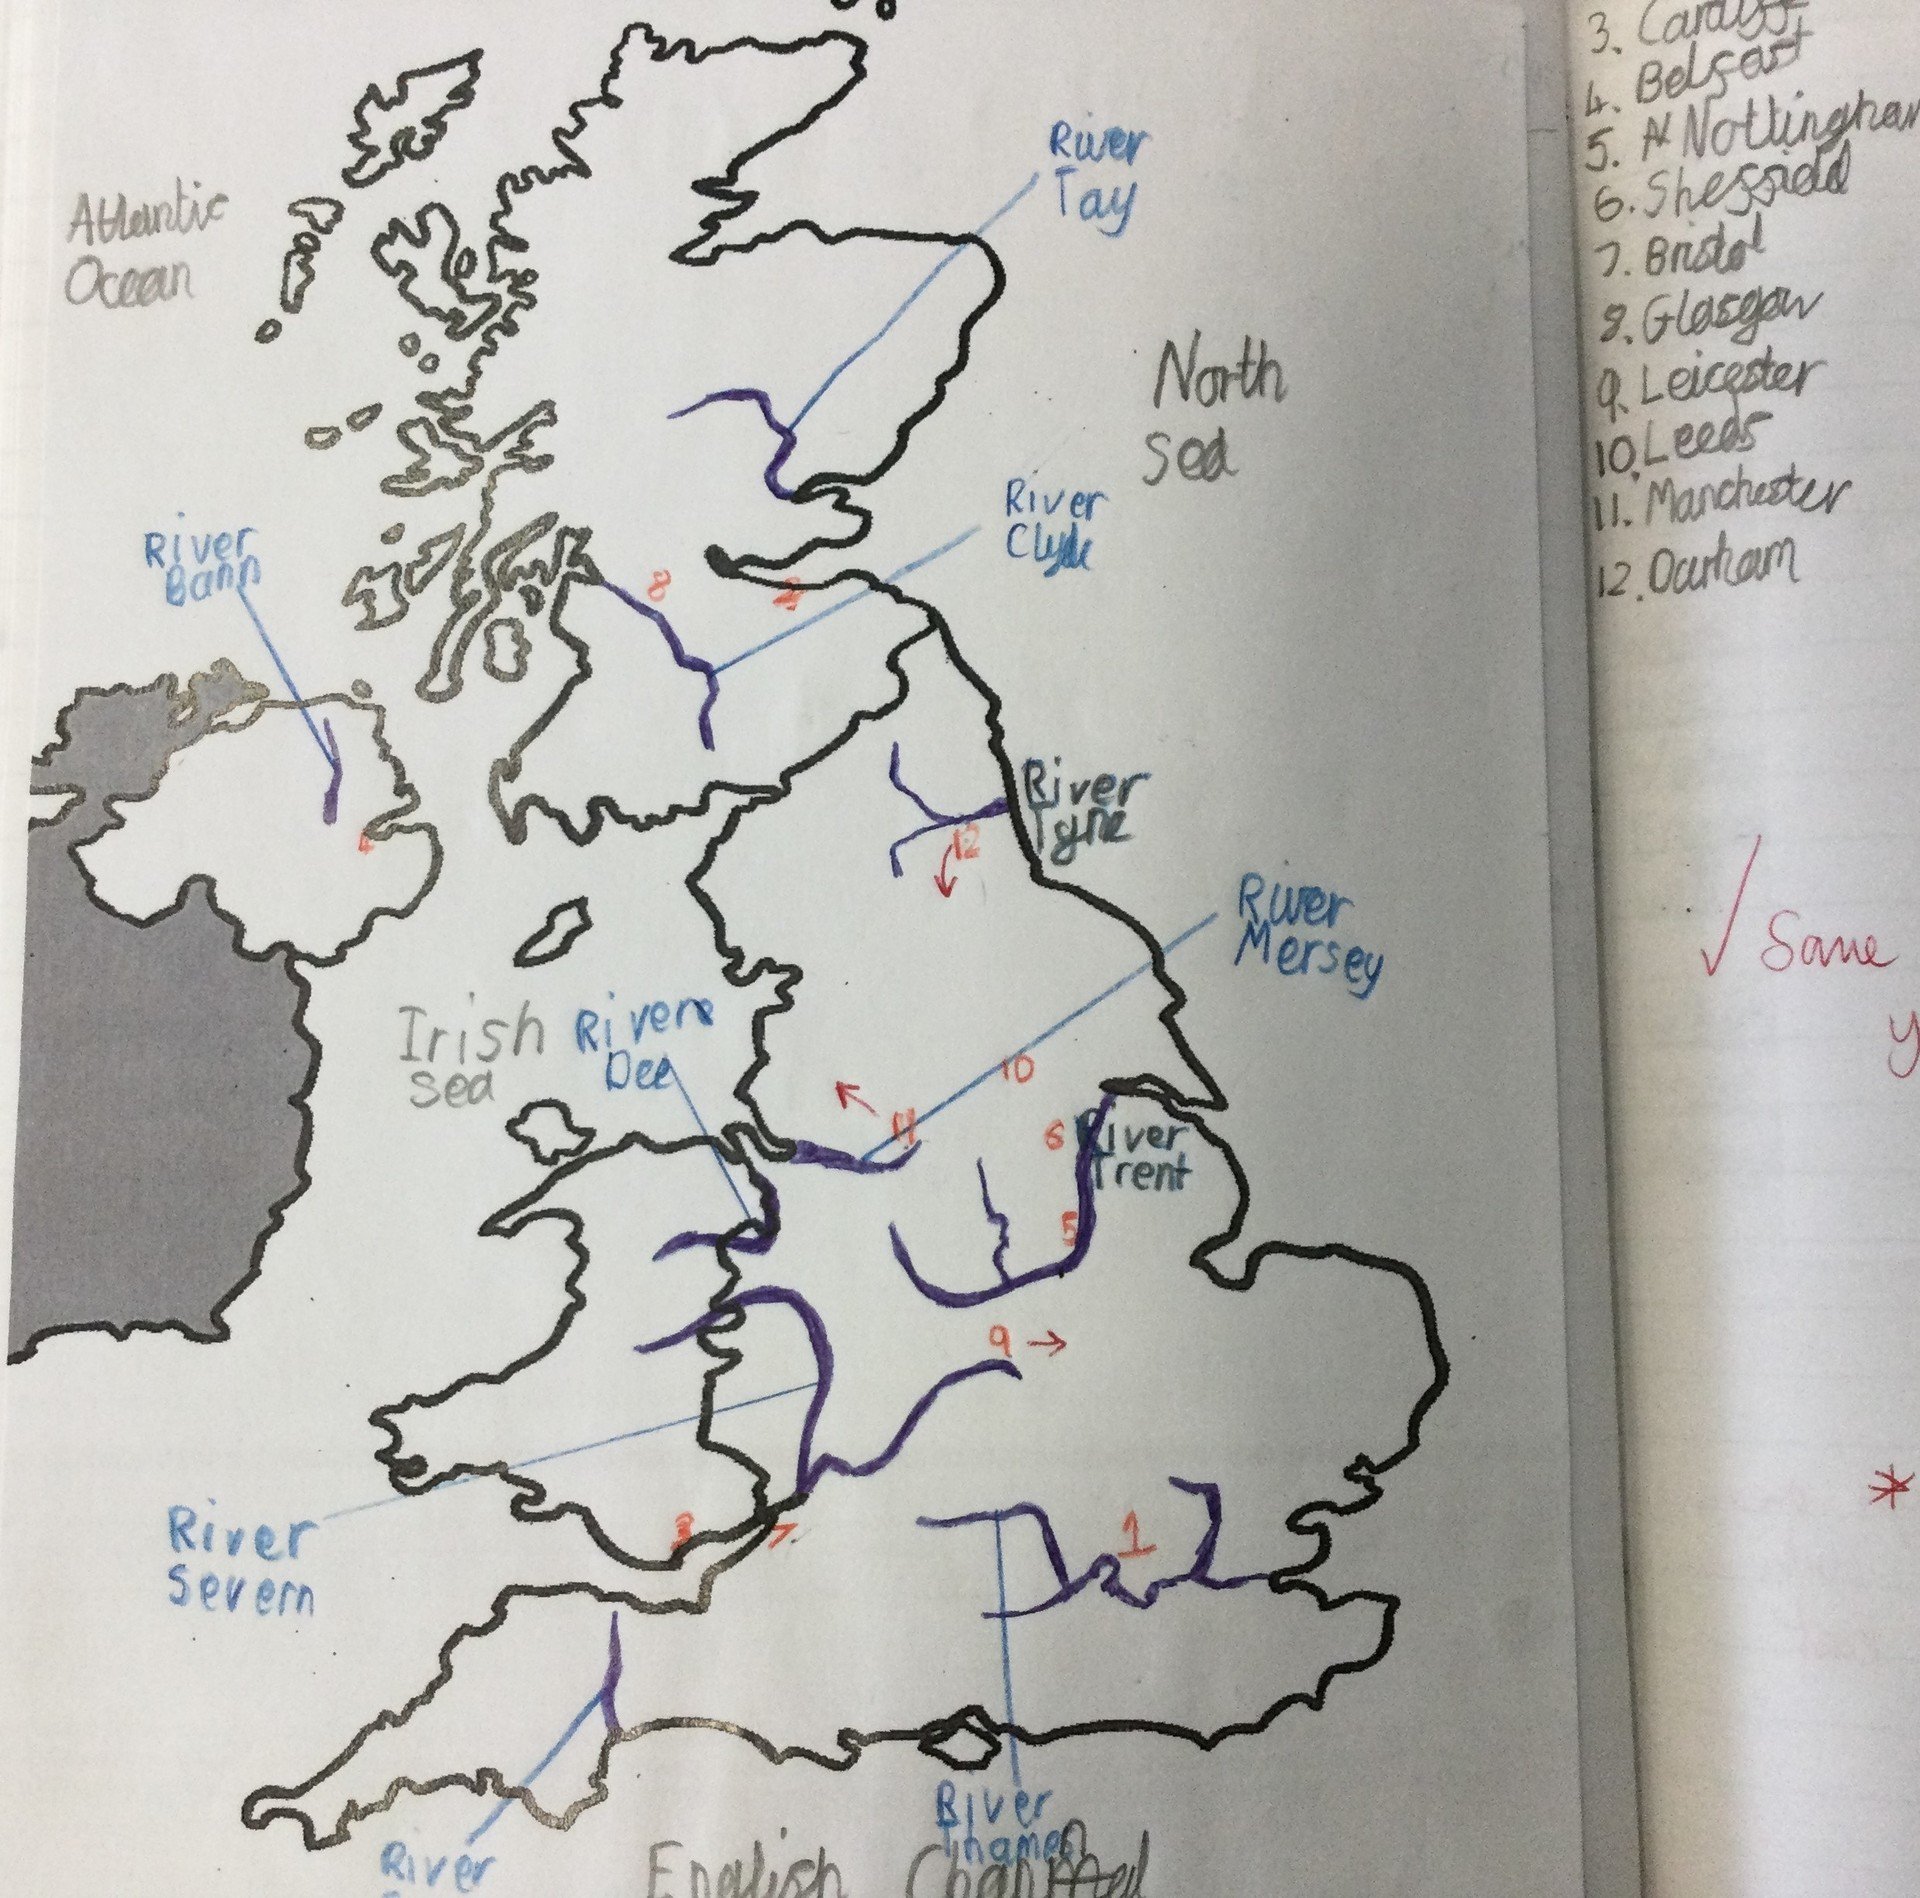 Atlantic
Ocean
River
Tay
North
Sea
River
Clyde
River
Bann
8
2
4
River
Tyne
12
River
Mersey
Irish
sea
River
Dee
10
11
6
River
Trent
5
9
River
Severn
3
7
1
River
Thames
River
English Channel
3. Cardiff
4. Belfast
5. Nottingham
6. Sheffield
7. Bristol
8. Glasgow
9. Leicester
10. Leeds
11. Manchester
12. Durham
✓ Same
y
*